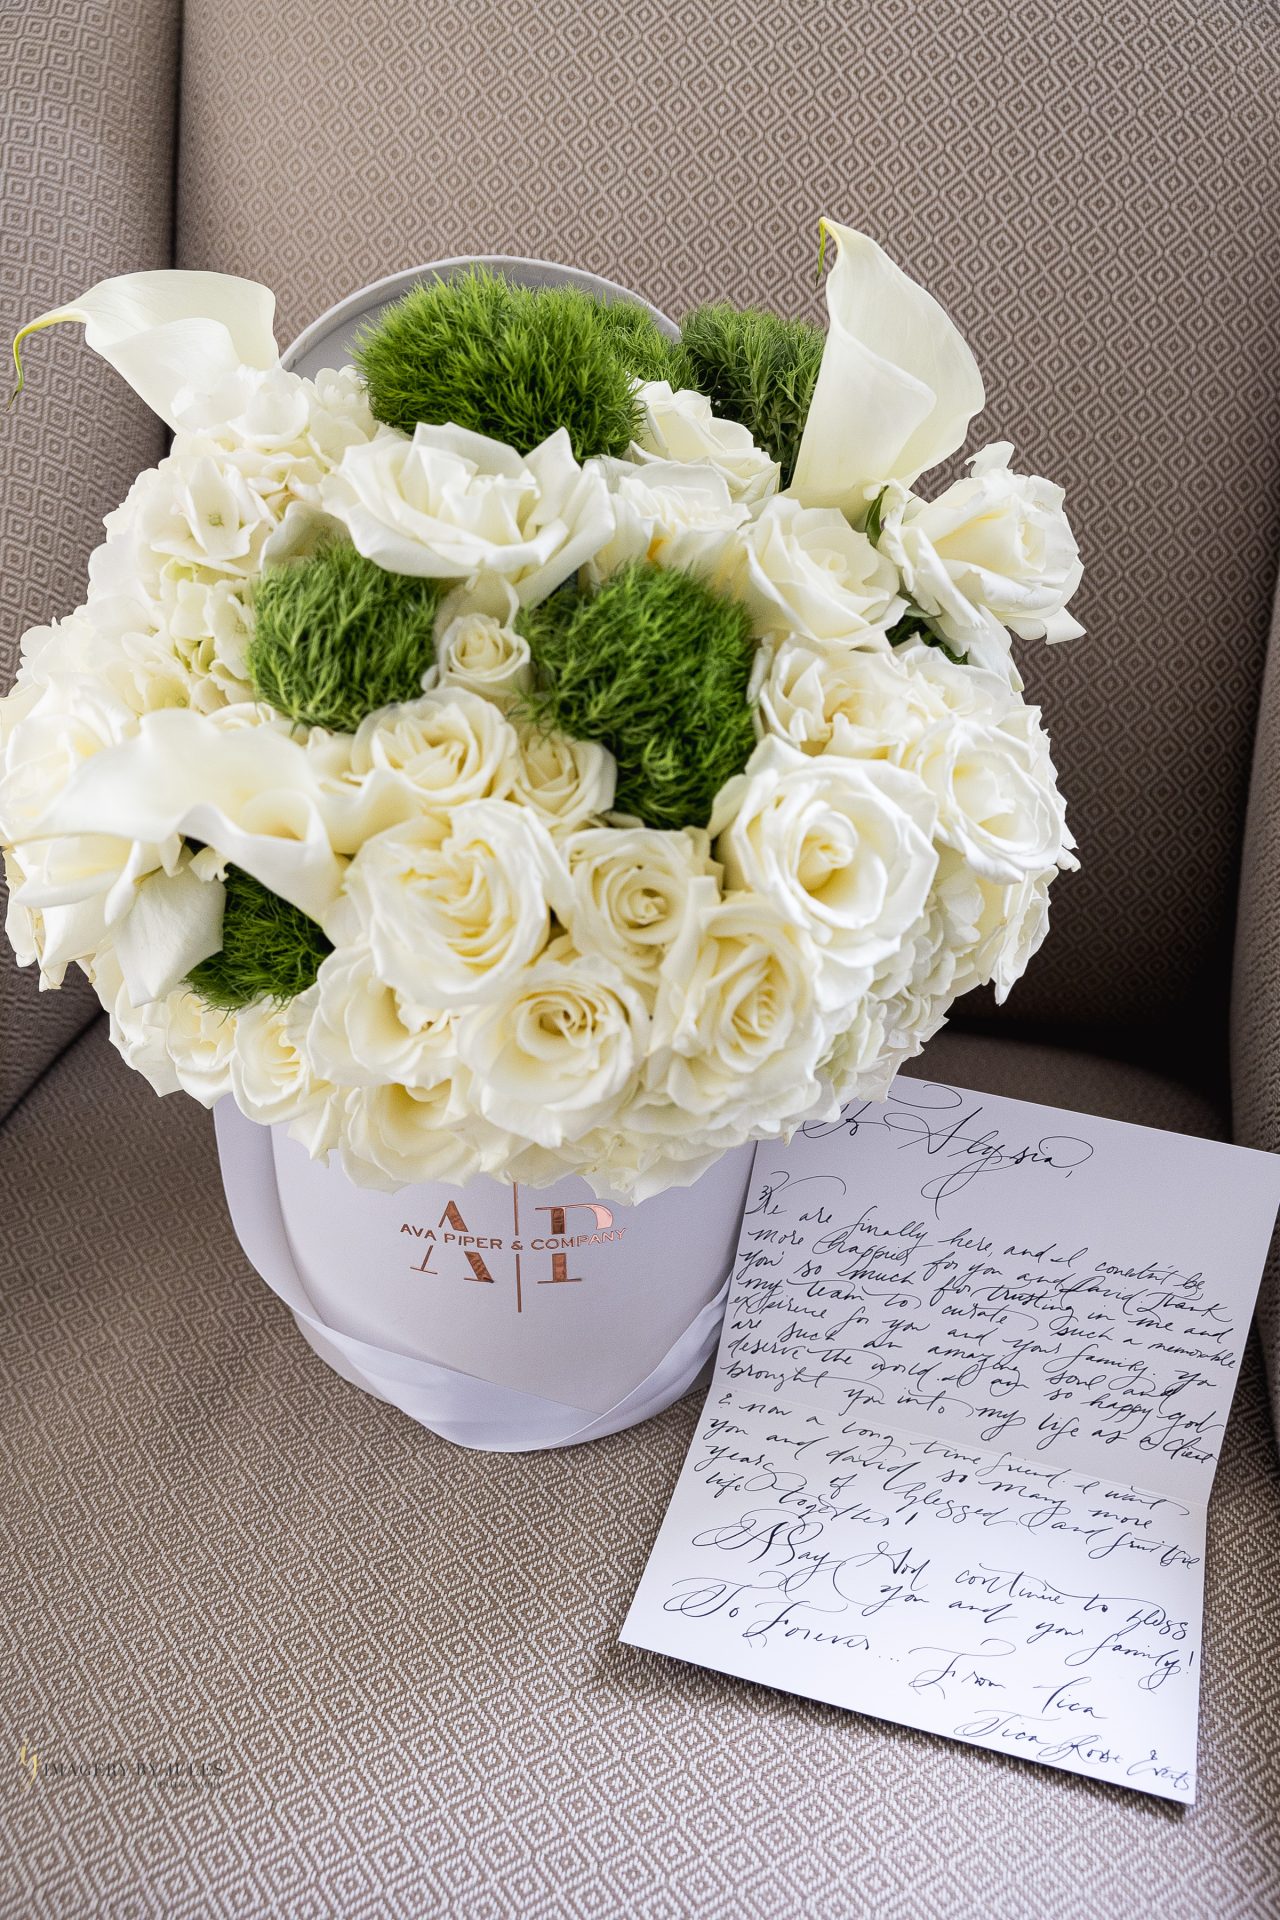 A|P
AVA PIPER & COMPANY
To Alyssia,
We are finally here, and I couldn't be
more happier for you and David. Thank
you so much for trusting in me and
my team to curate such a memorable
expirence for you and your family. You
are such an amazing soul and
deserve the world. I am so happy God
brought you into my life as a client
& now a long time friend. I wish
you and david so many more
years of blessed and fruitful
life together!
May God continue to bless
you and your family!
To Forever... From Tica
Tica Rose Events
IMAGERY BY JULES